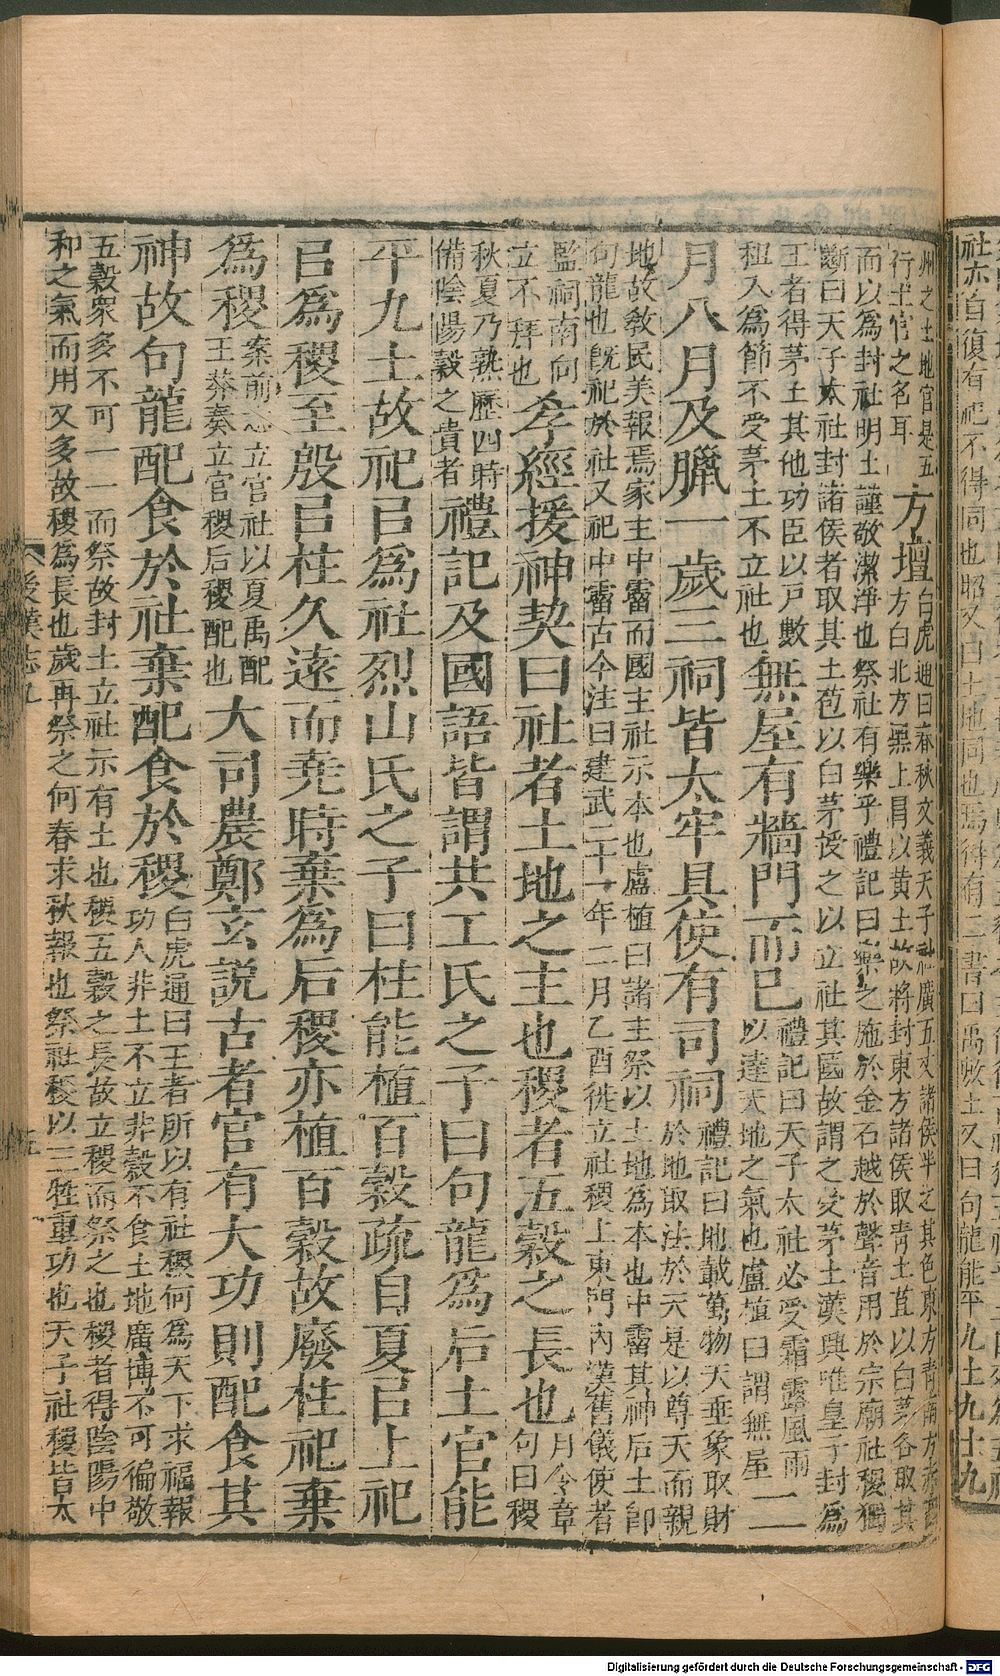 社亦自復有祀不得同也
州之土地官是五
行土官之名耳
方壇
白虎通曰春秋文義天子社廣五丈諸侯半之其色東方青南方赤西
方白北方黑上冒以黃土故將封東方諸侯取靑土苴以白茅各取其
而以為封社明土謹敬潔淨也祭社有樂乎禮記曰樂之施於金石越於聲音用於宗廟社稷獨
斷曰天子太社封諸侯者取其土苞以白茅授之以立社其國故謂之受茅土漢興唯皇子封為
王者得茅土其他功臣以戶數
租入為節不受茅土不立社也
無屋有牆門而已
禮記曰天子太社必受霜露風雨
以達天地之氣也盧植曰謂無屋
二
月八月及臘一歲三祠皆太牢具使有司祠
禮記曰地載萬物天垂象取財
於地取法於天是以尊天而親
地故敎民美報焉家主中霤而國主社示本也盧植曰諸主祭以土地為本也中霤其神后土卽
句龍也旣祀於社又祀中霤古今注曰建武二十一年二月乙酉徙立社稷上東門內漢舊儀使者
監祠南向
立不拜也
孝經援神契曰社者土地之主也稷者五穀之長也
月令章
句曰稷
秋夏乃熟歷四時
備陰陽穀之貴者
禮記及國語皆謂共工氏之子曰句龍為后土官能
平九土故祀㠯為社烈山氏之子曰柱能植百穀疏自夏㠯上祀
㠯為稷至殷㠯柱久遠而堯時棄為后稷亦植百穀故廢柱祀棄
為稷
案前志立官社以夏禹配
王莽奏立官稷后稷配也
大司農鄭玄説古者官有大功則配食其
神故句龍配食於社棄配食於稷
白虎通曰王者所以有社稷何為天下求福報
功人非土不立非穀不食土地廣博不可徧敬
五穀衆多不可一一而祭故封土立社示有土也稷五穀之長故立稷而祭之也稷者得陰陽中
和之氣而用又多故稷為長也歲再祭之何春求秋報也祭社稷以三牲重功也天子社稷皆太
後漢志九
Digitalisierung gefördert durch die Deutsche Forschungsgemeinschaft - DFG